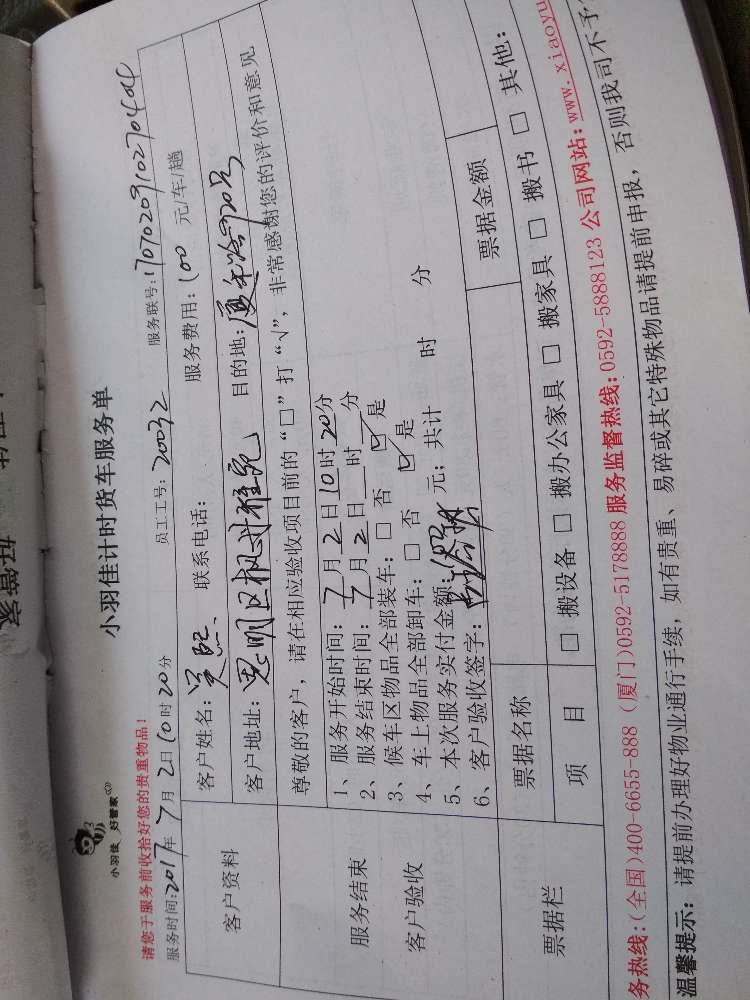 好管家
小羽佳 好管家
小羽佳计时货车服务单
请您于服务前收拾好您的贵重物品！
服务时间：2017年7月2日10时20分 员工工号：20032 服务联号：1707020910270404
客户资料
客户姓名：吴熙 联系电话： 服务费用：100 元/车/趟
客户地址：思明区枫丹雅苑 目的地：厦禾路920号
尊敬的客户，请在相应验收项目前的“□”打“√”，非常感谢您的评价和意见
服务结束
客户验收
1、服务开始时间：7月2日10时20分
2、服务结束时间：7月2日 时 分
3、候车区物品全部装车：□ 否 ☑ 是
4、车上物品全部卸车：□ 否 ☑ 是
5、本次服务实付金额： 元；共计 时 分
6、客户验收签字：
票据栏
票据名称 票据金额
项 目 □ 搬设备 □ 搬办公家具 □ 搬家具 □ 搬书 □ 其他：
务热线：(全国)400-6655-888 (厦门)0592-5178888 服务监督热线：0592-5888123 公司网站：www.xiaoyu
温馨提示：请提前办理好物业通行手续，如有贵重、易碎或其它特殊物品请提前申报，否则我司不予